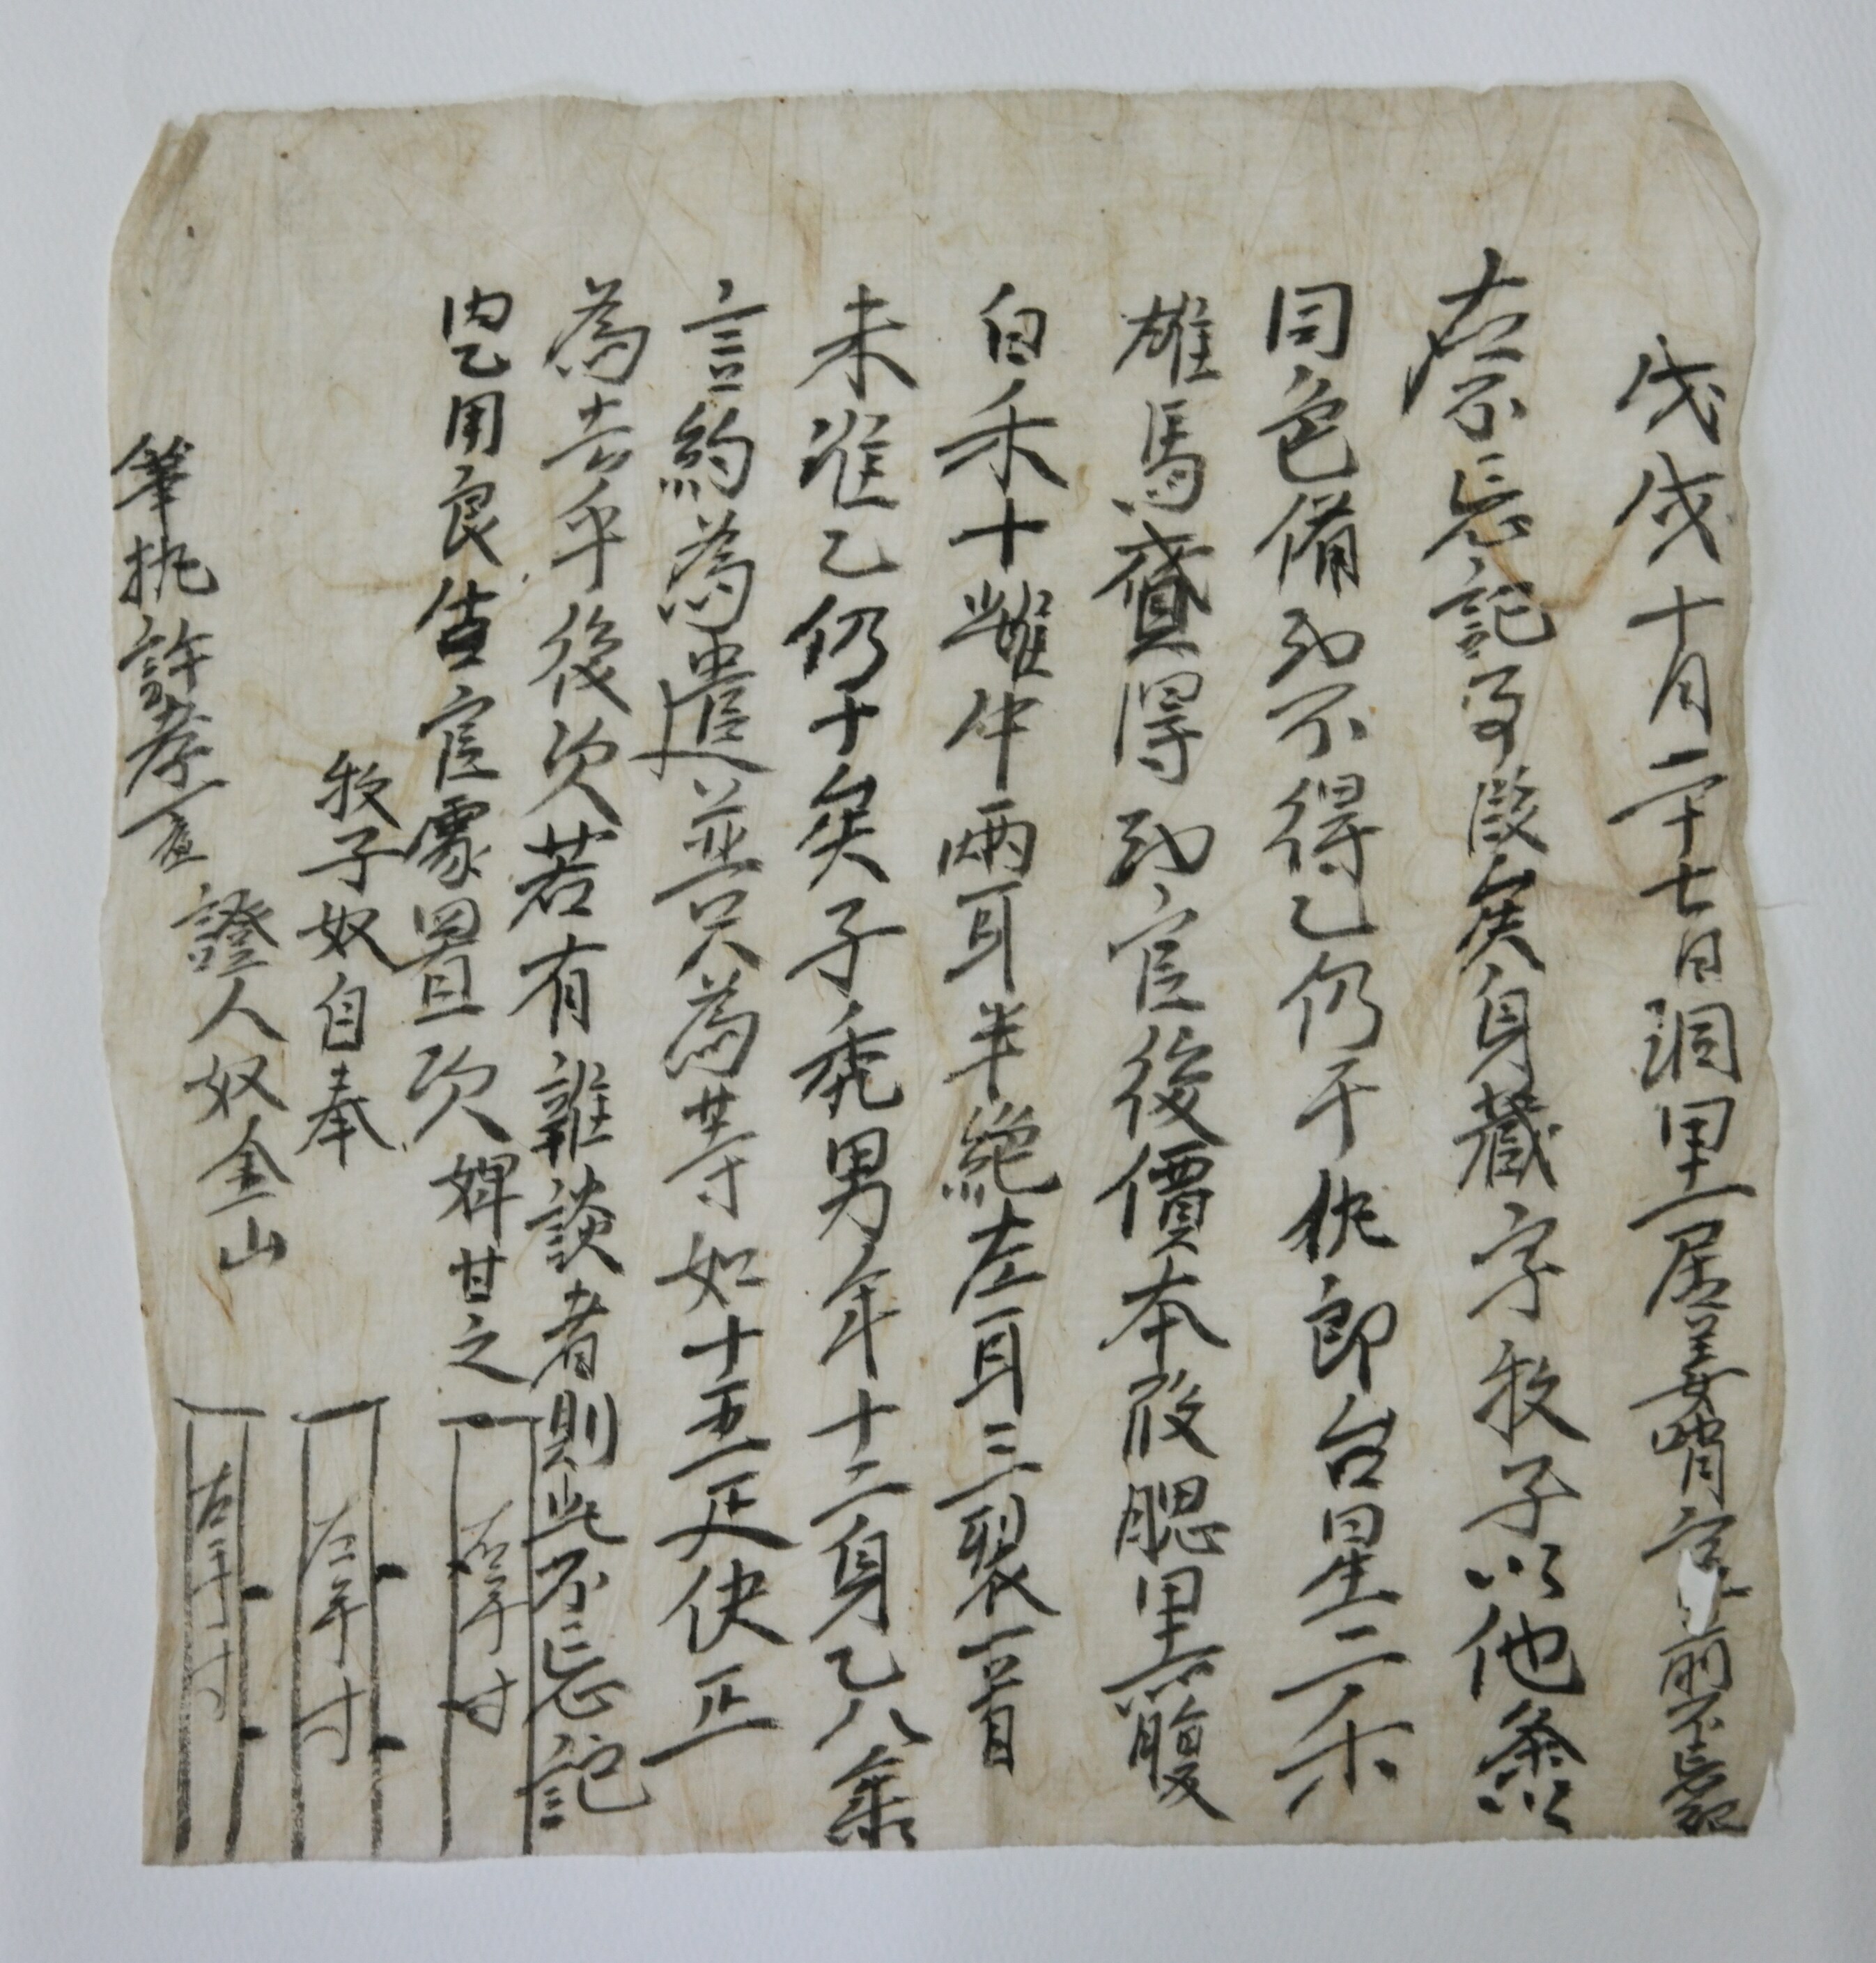 戊戌十月二十七日洞里居姜時宗前不忘記
右不忘記事段矣身藏字牧子以他条以
同色備納不得乙仍于仇郎台星二禾
雄馬貸得納官後價本段腮黑腹
白禾十雌牛兩耳半絶左耳三裂一首
未准乙仍于矣子禿男年十二身乙八年
言約為遣並只為等如十五疋伏正
為去乎後次若有雜談者則此不忘記
内乙用良告官處置次婢甘之 右手寸
牧子奴自奉 左手寸
證人奴金山 左手寸
筆執許孝